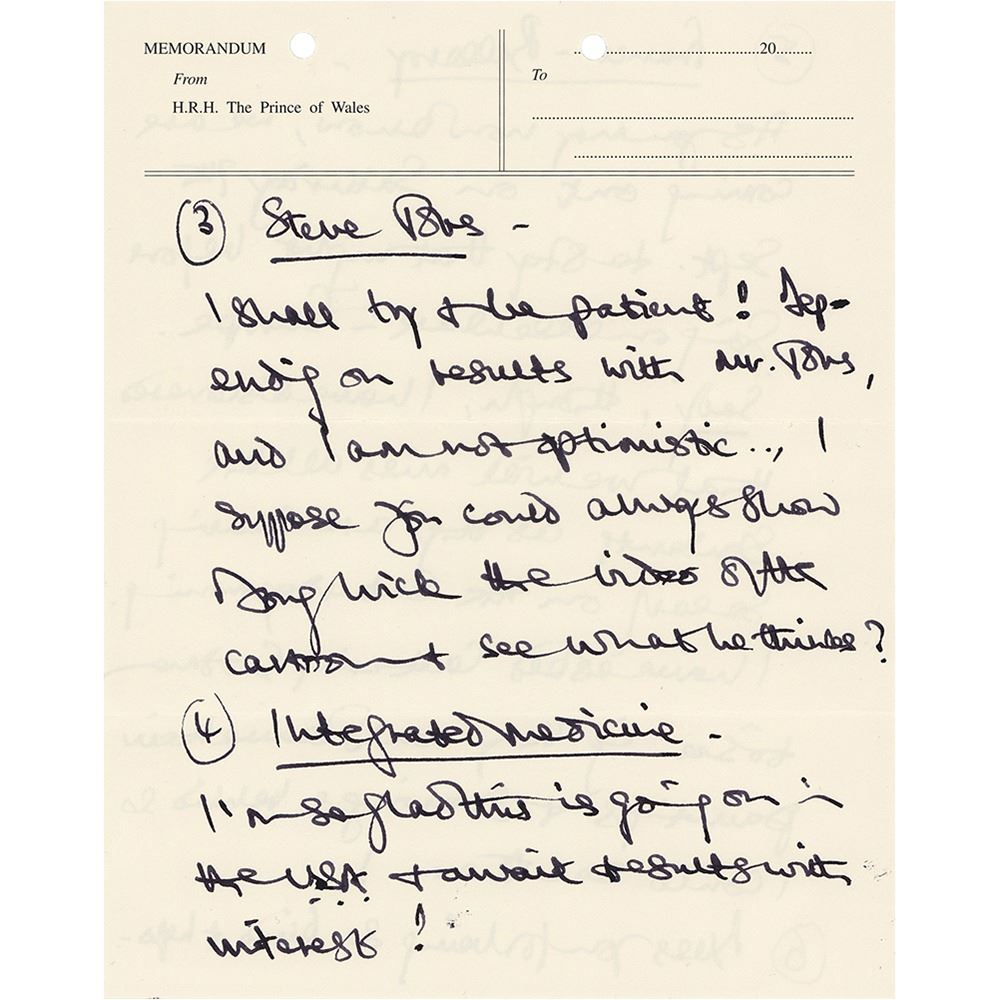 MEMORANDUM
From
H.R.H. The Prince of Wales
20
To
③ Steve
I shall try & be patient! Dep-
ending on results with Mr.
and I am not optimistic.., I
suppose you could always show
Doug Wick the video of the
cartoon & see what he thinks?
④ Integrated medicine -
I'm so glad this is going on in
the USA & await results with
interest!